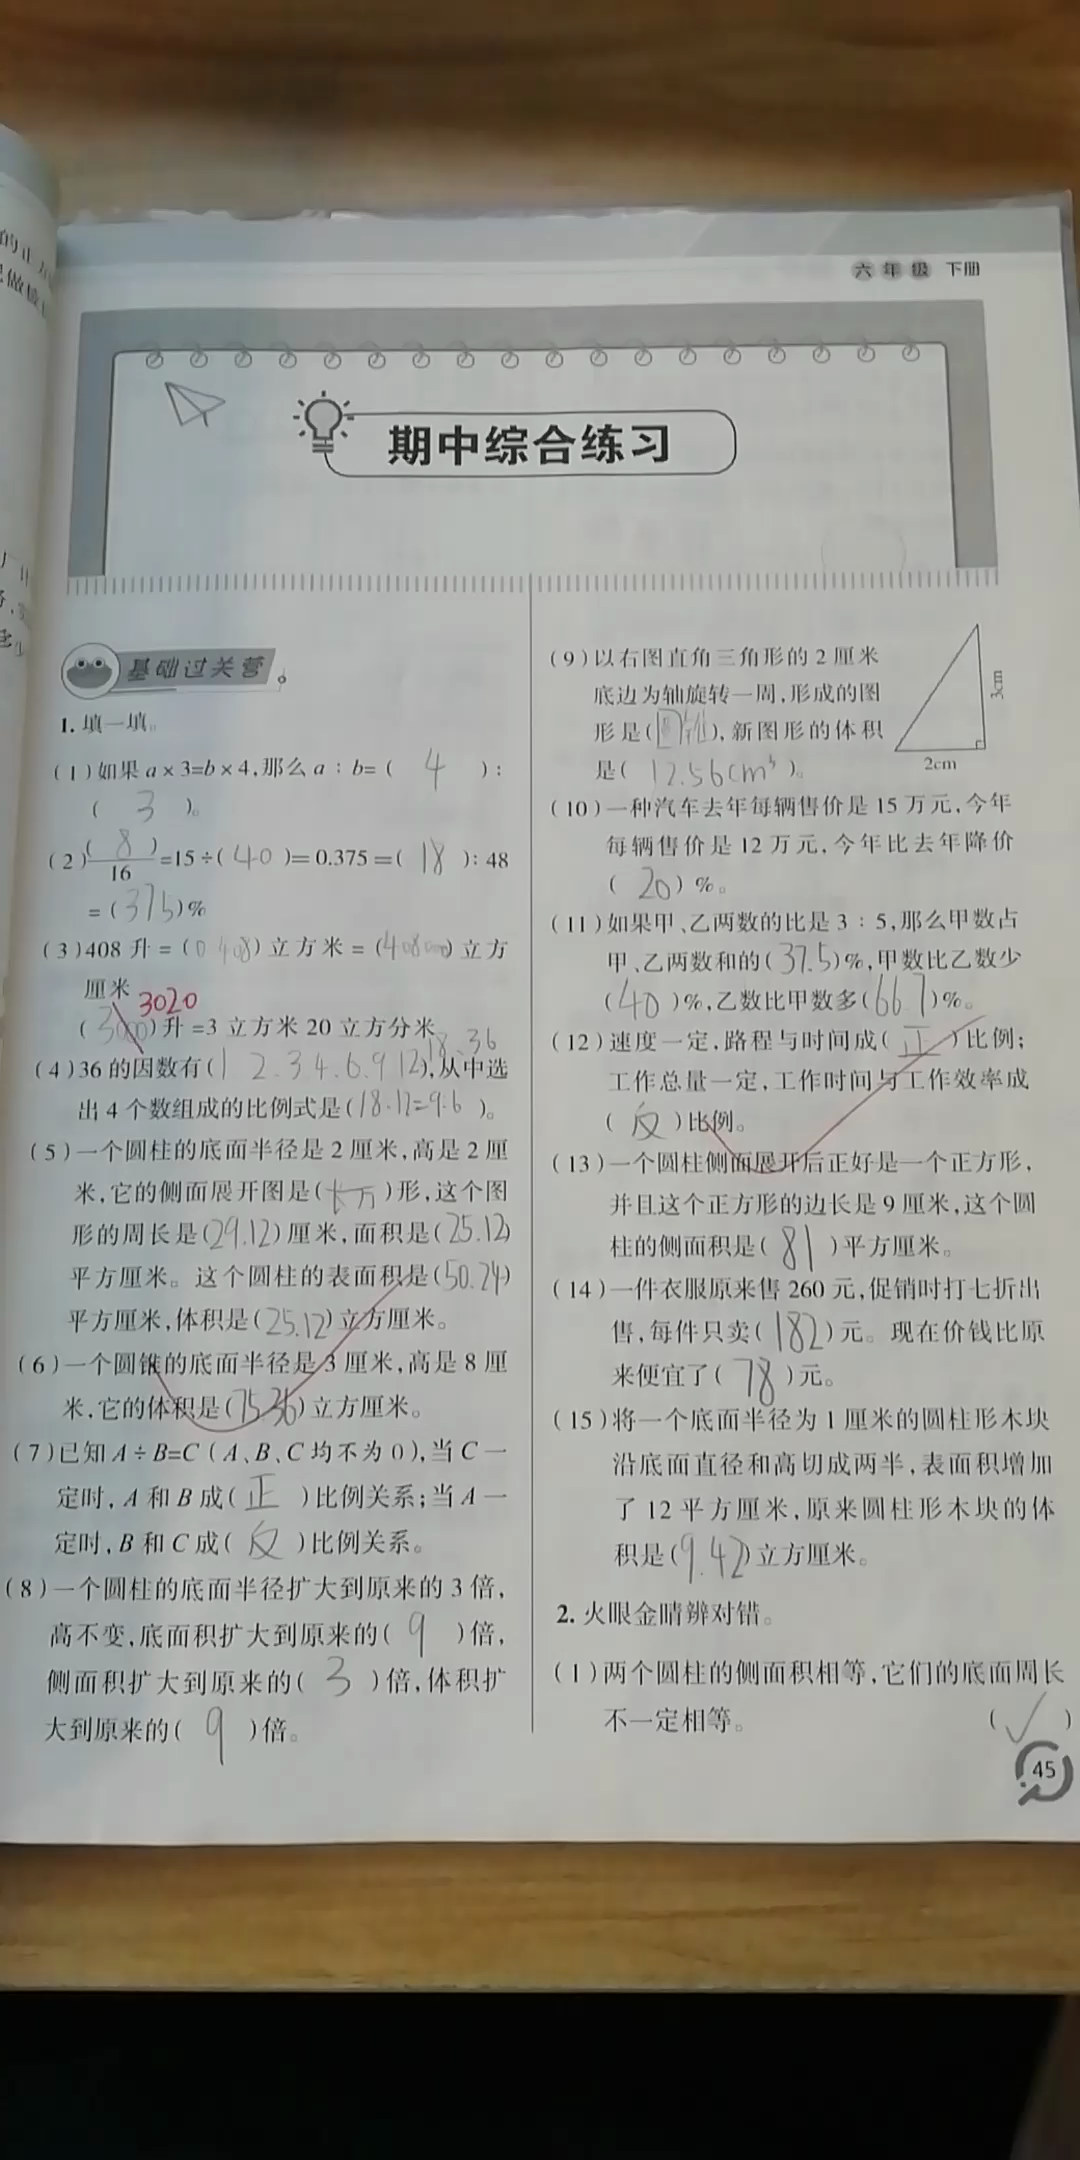 六年级 下册
期中综合练习
基础过关营
1. 填一填。
(1)如果a×3=b×4,那么a:b=( 4 ):
( 3 )。
(2)( 8 )/16=15÷(40)=0.375=( 18 ):48
=(375)%
(3)408升=(0.408)立方米=(408000)立方
厘米
3020
(3000)升=3立方米20立方分米
18、36
(4)36的因数有(1 2.3 4.6.9 12),从中选
出4个数组成的比例式是(18:12=9:6)。
(5)一个圆柱的底面半径是2厘米,高是2厘
米,它的侧面展开图是(长方)形,这个图
形的周长是(29.12)厘米,面积是(25.12)
平方厘米。这个圆柱的表面积是(50.24)
平方厘米,体积是(25.12)立方厘米。
(6)一个圆锥的底面半径是3厘米,高是8厘
米,它的体积是(75.36)立方厘米。
(7)已知A÷B=C(A、B、C均不为0),当C一
定时,A和B成( 正 )比例关系;当A一
定时,B和C成( 反 )比例关系。
(8)一个圆柱的底面半径扩大到原来的3倍,
高不变,底面积扩大到原来的( 9 )倍,
侧面积扩大到原来的( 3 )倍,体积扩
大到原来的( 9 )倍。
(9)以右图直角三角形的2厘米
底边为轴旋转一周,形成的图
形是(圆锥),新图形的体积
是( 12.56cm³ )。
3cm
2cm
(10)一种汽车去年每辆售价是15万元,今年
每辆售价是12万元,今年比去年降价
( 20 )%。
(11)如果甲、乙两数的比是3:5,那么甲数占
甲、乙两数和的(37.5)%,甲数比乙数少
(40)%,乙数比甲数多(66.7)%。
(12)速度一定,路程与时间成( 正 )比例;
工作总量一定,工作时间与工作效率成
( 反 )比例。
(13)一个圆柱侧面展开后正好是一个正方形,
并且这个正方形的边长是9厘米,这个圆
柱的侧面积是( 81 )平方厘米。
(14)一件衣服原来售260元,促销时打七折出
售,每件只卖( 182 )元。现在价钱比原
来便宜了( 78 )元。
(15)将一个底面半径为1厘米的圆柱形木块
沿底面直径和高切成两半,表面积增加
了12平方厘米,原来圆柱形木块的体
积是(9.42)立方厘米。
2. 火眼金睛辨对错。
(1)两个圆柱的侧面积相等,它们的底面周长
不一定相等。 ( ✓ )
45